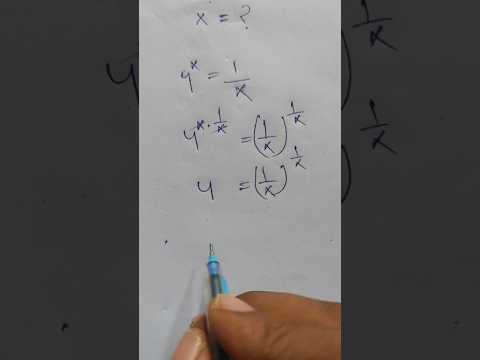 x = ?
4^x = 1/x
4^(x · 1/x) = (1/x)^(1/x)
4 = (1/x)^(1/x)